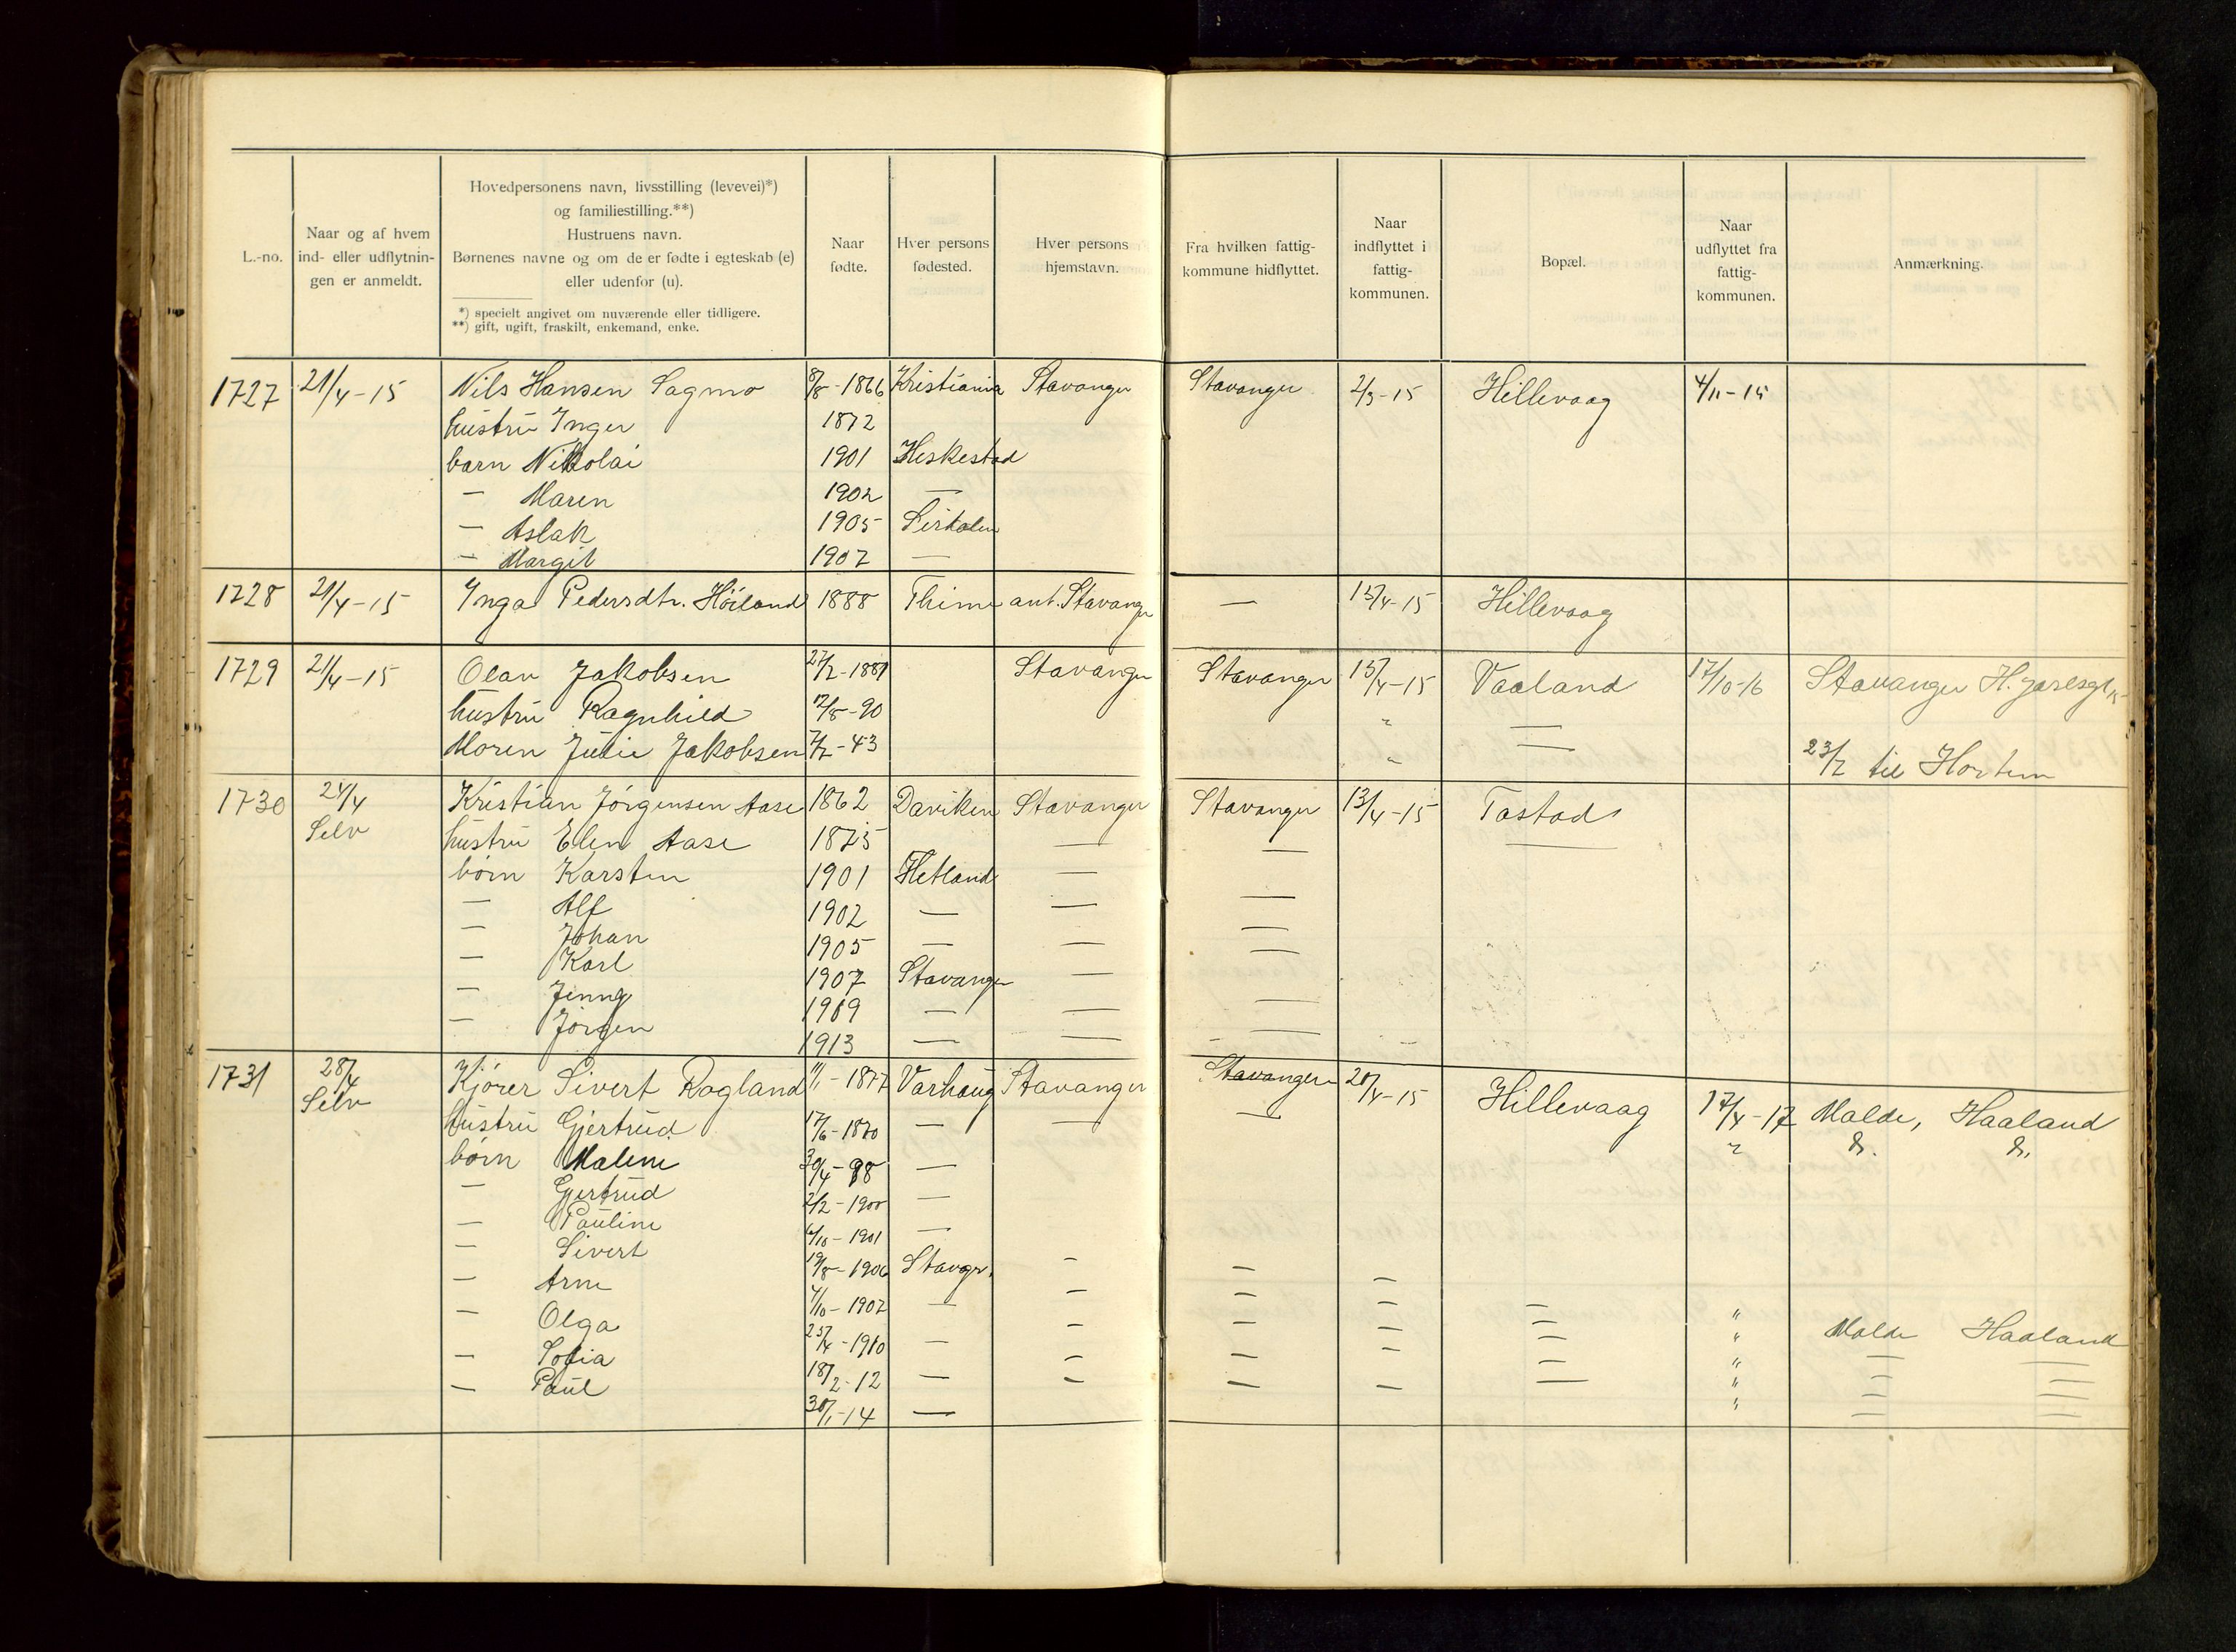 L.-no.
Naar og af hvem
ind- eller udflytnin-
gen er anmeldt.
Hovedpersonens navn, livsstilling (levevei)*)
og familiestilling.**)
Hustruens navn.
Børnenes navne og om de er fødte i egteskab (e)
eller udenfor (u).
*) specielt angivet om nuværende eller tidligere.
**) gift, ugift, fraskilt, enkemand, enke.
Naar
fødte.
Hver persons
fødested.
Hver persons
hjemstavn.
Fra hvilken fattig-
kommune hidflyttet.
Naar
indflyttet i
fattig-
kommunen.
Bopæl.
Naar
udflyttet fra
fattig-
kommunen.
Anmærkning.
1727 21/4-15 Nils Hansen Sagmo 8/8-1866 Kristiania Stavanger Stavanger 2/3-15 Hillevaag 4/11-15
hustru Inger 1872
barn Nikolai 1901 Heskestad
— Maren 1902 —
— Aslak 1905 Sirdalen
— Margit 1907 —
1728 21/4-15 Inga Pedersdtr. Höiland 1888 Thime ant. Stavanger — 15/4-15 Hillevaag
1729 21/4-15 Olav Jakobsen 27/2-1881 Stavanger Stavanger 15/4-15 Vaaland 17/10-16 Stavanger H. Jarlsgt
hustru Ragnhild 12/8-90 " —
Moren Julie Jakobsen 7/2-43 " — 23/2 til Horten
1730 24/4 Kristian Jörgensen Aase 1862 Daviken Stavanger Stavanger 13/4-15 Tastad
Selv hustru Elen Aase 1875 — — —
börn Karsten 1901 Hetland — —
— Alf 1902 — — —
— Johan 1905 — — —
— Karl 1907 Stavanger — —
— Jenny 1909 — — —
— Jörgen 1913 — —
1731 28/4 Kjörer Sivert Rogland 11/1-1877 Varhaug Stavanger Stavanger 20/4-15 Hillevaag 17/4-17 Malde, Haaland
Selv hustru Gjertrud 17/6-1870 — — — " D. D.
börn Malene 30/4-98 —
— Gjertrud 2/2-1900 —
— Pauline 6/10-1901 —
— Sivert 19/8-1906 Stavgr. — — —
— Arne 4/10-1907 — — — — — "
— Olga 25/4-1910 — — — — — " Malde Haaland
— Sofia 18/2-12 — — — — — " — —
— Paul 30/1-14 — — — — — " — —